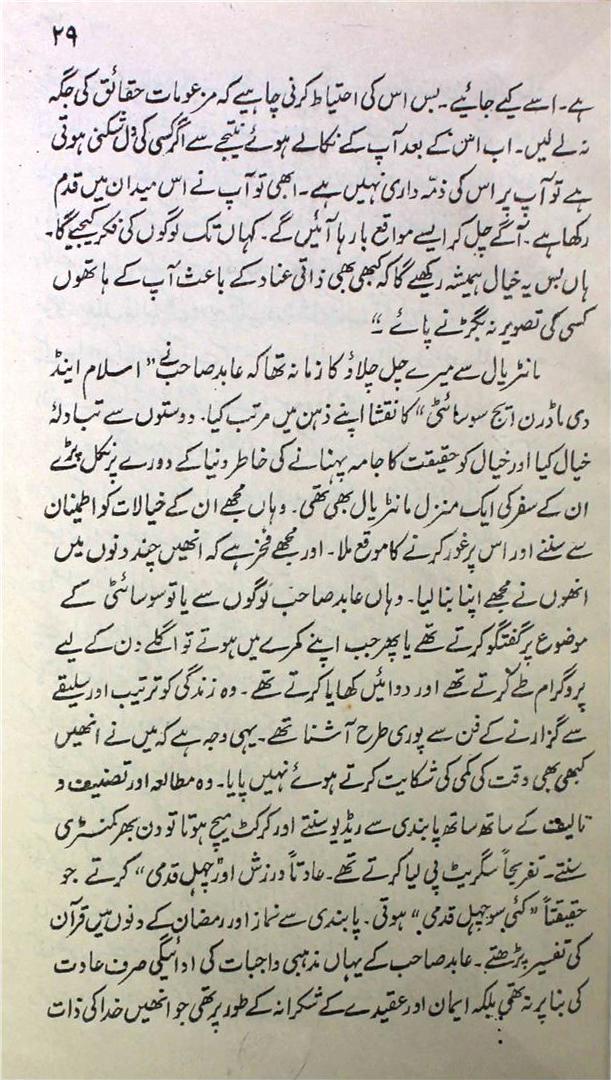 ۲۹
ہے۔ اسے کیے جائیے۔ بس اس کی احتیاط کرنی چاہیے کہ مزعومات حقائق کی جگہ
نہ لے لیں۔ اب اس کے بعد آپ کے نکالے ہوئے نتیجے سے اگر کسی کی دل شکنی ہوتی
ہے تو آپ پر اس کی ذمّہ داری نہیں ہے۔ ابھی تو آپ نے اس میدان میں قدم
رکھا ہے۔ آگے چل کر ایسے مواقع بار ہا آئیں گے۔ کہاں تک لوگوں کی فکر کیجیے گا۔
ہاں بس یہ خیال ہمیشہ رکھیے گا کہ کبھی بھی ذاتی عناد کے باعث آپ کے ہاتھوں
کسی کی تصویر نہ بگڑنے پائے۔"
مانٹریال سے میرے چل چلاؤ کا زمانہ تھا کہ عابد صاحب نے "اسلام اینڈ
دی ماڈرن ایج سوسائٹی" کا نقشا اپنے ذہن میں مرتب کیا۔ دوستوں سے تبادلۂ
خیال کیا اور خیال کو حقیقت کا جامہ پہنانے کی خاطر دنیا کے دورے پر نکل پڑے
ان کے سفر کی ایک منزل مانٹریال بھی تھی۔ وہاں مجھے ان کے خیالات کو اطمینان
سے سننے اور اس پر غور کرنے کا موقع ملا۔ اور مجھے فخر ہے کہ انھیں چند دنوں میں
انھوں نے مجھے اپنا بنا لیا۔ وہاں عابد صاحب لوگوں سے یا تو سوسائٹی کے
موضوع پر گفتگو کرتے تھے یا پھر جب اپنے کمرے میں ہوتے تو اگلے دن کے لیے
پروگرام طے کرتے تھے اور دوائیں کھایا کرتے تھے۔ وہ زندگی کو ترتیب اور سلیقے
سے گزارنے کے فن سے پوری طرح آشنا تھے۔ یہی وجہ ہے کہ میں نے انھیں
کبھی بھی وقت کی کمی کی شکایت کرتے ہوئے نہیں پایا۔ وہ مطالعہ اور تصنیف و
تالیف کے ساتھ ساتھ پابندی سے ریڈیو سنتے اور کرکٹ میچ ہوتا تو دن بھر کمنٹری
سنتے۔ تفریحاً سگریٹ پی لیا کرتے تھے۔ عادتاً ورزش اور "چہل قدمی" کرتے جو
حقیقتاً "کئی سو چہل قدمی" ہوتی۔ پابندی سے نماز اور رمضان کے دنوں میں قرآن
کی تفسیر پڑھتے۔ عابد صاحب کے یہاں مذہبی واجبات کی ادائیگی صرف عادت
کی بنا پر نہ تھی بلکہ ایمان اور عقیدے کے شکرانہ کے طور پر تھی جو انھیں خدا کی ذات